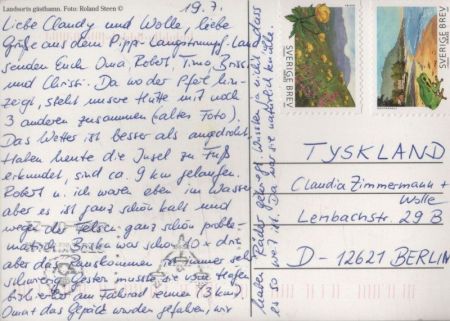 Landsorts gästhamn. Foto: Roland Steen ©
19.7.
Liebe Claudy und Wolle, liebe
Grüße aus dem Pippi-Langstrumpf-Land
senden Euch Oma, Robert, Timo, Briska
und Christi. Da wo der Pfeil hin-
zeigt, steht unsere Hütte mit noch
3 anderen zusammen (altes Foto).
Das Wetter ist besser als angedroht.
Haben heute die Insel zu Fuß
erkundet, sind ca. 9 km gelaufen.
Robert u. ich waren eben im Wasser
aber es ist ganz schön kalt und
wegen der Felsen ganz schön proble-
matisch. war schon 20 x drin
aber das Rauskommen ist immer sehr
schwierig. Gestern mussten wir vom Hafen
bis hierher am Fahrrad rennen (3 km).
Oma + das Gepäck wurden gefahren, wir
haben Räder gehabt. Wussten ja nicht, dass
es so weit ist.
SVERIGE BREV
SVERIGE BREV
TYSKLAND
Claudia Zimmermann +
Wolle
Lenbachstr. 29 B
D-12621 BERLIN